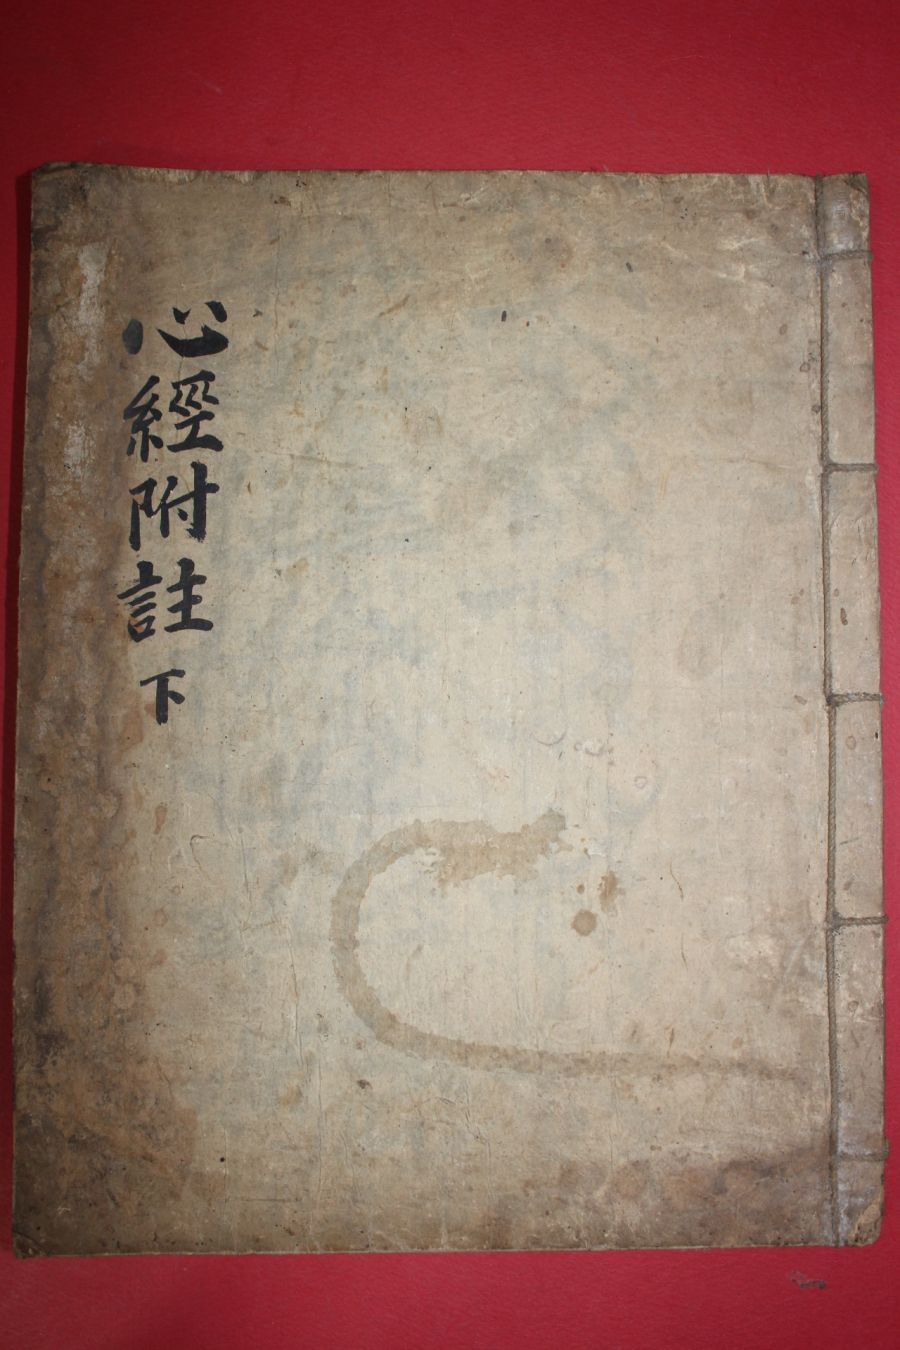 心經附註 下